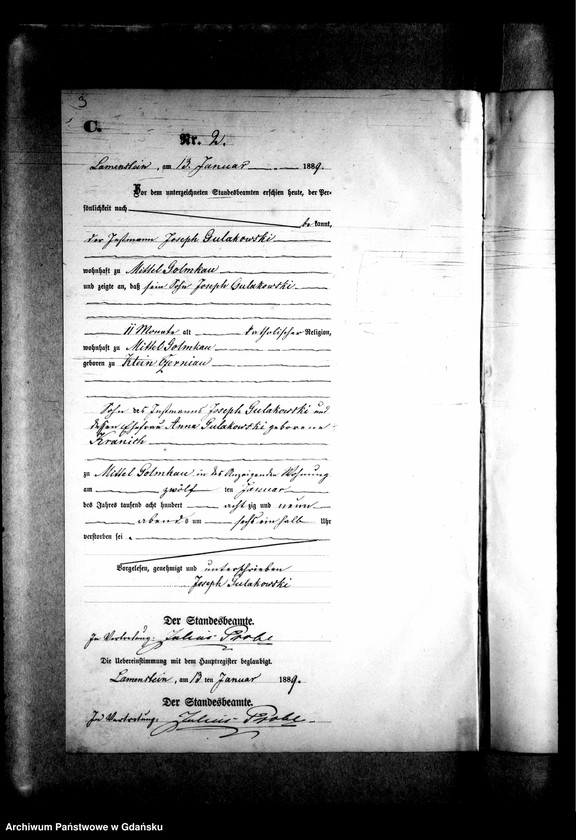 3
C.
Nr. 2.
Lamenstein, am 13. Januar 1889.
Vor dem unterzeichneten Standesbeamten erschien heute, der Per-
sönlichkeit nach
be kannt,
der Instmann Joseph Gulakowski
wohnhaft zu Mittel Golmkau
und zeigte an, daß sein Sohn Joseph Gulakowski
11 Monate alt katholischer Religion,
wohnhaft zu Mittel Golmkau
geboren zu Klein Czerniau
Sohn des Instmanns Joseph Gulakowski und
dessen Ehefrau Anna Gulakowski geborene
Kranich
zu Mittel Golmkau in des Anzeigenden Wohnung
am zwölf ten Januar
des Jahres tausend acht hundert acht zig und neun
abends um sechs ein halb Uhr
verstorben sei.
Vorgelesen, genehmigt und unterschrieben
Joseph Gulakowski
Der Standesbeamte.
In Vertretung: Julius Probe
Die Uebereinstimmung mit dem Hauptregister beglaubigt.
Lamenstein, am 13 ten Januar 1889.
Der Standesbeamte.
In Vertretung: Julius Probe
Archiwum Państwowe w Gdańsku